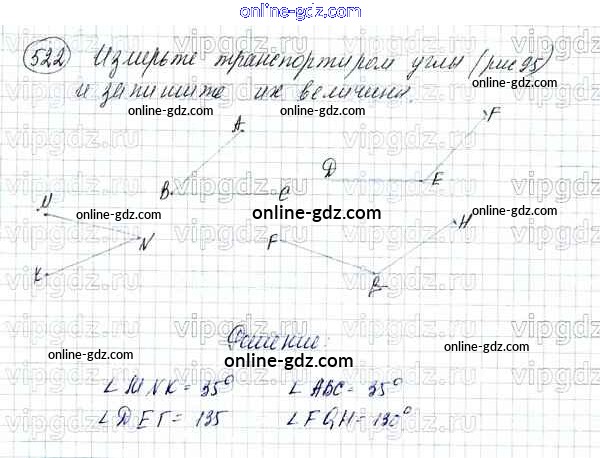 online-gdz.com
522 Измерьте транспортиром углы (рис 95)
и запишите их величины.
online-gdz.com online-gdz.com online-gdz.com
A F
D E
B C
M
online-gdz.com online-gdz.com online-gdz.com
N F H
K
Решение:
online-gdz.com online-gdz.com online-gdz.com
∠ MNK = 35° ∠ ABC = 35°
∠ DEF = 135 ∠ FQH = 130°
online-gdz.com online-gdz.com
vipgdz.ru